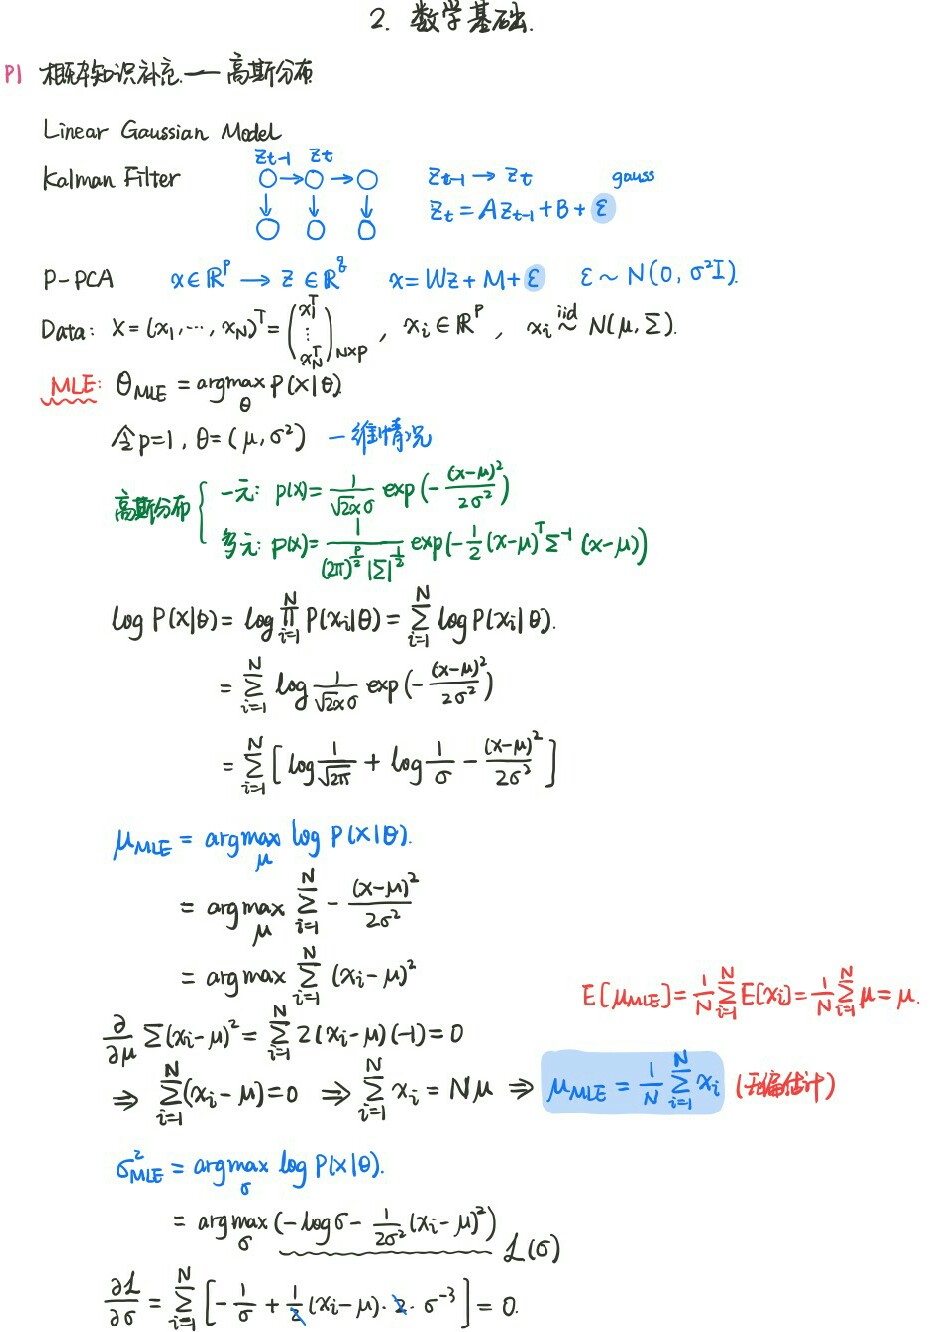 2. 数学基础.
P1 概率知识补充.— 高斯分布
Linear Gaussian Model
Kalman Filter
z_{t-1} z_t
z_{t-1} → z_t gauss
z_t = A z_{t-1} + B + ε
P-PCA x ∈ ℝ^p → z ∈ ℝ^q x = Wz + M + ε ε ~ N(0, σ²I).
Data: X = (x_1, ⋯, x_N)^T = (x_1^T ⋮ x_N^T)_{N×p} , x_i ∈ ℝ^p , x_i ~^{iid} N(μ, Σ).
MLE: θ_{MLE} = argmax_θ P(X|θ)
令 p=1, θ=(μ, σ²) 一维情况
高斯分布 { 一元: p(x) = 1/(√2π σ) exp(-(x-μ)²/(2σ²))
多元: p(x) = 1/((2π)^{p/2} |Σ|^{1/2}) exp(-1/2 (x-μ)^T Σ^{-1} (x-μ))
log P(X|θ) = log ∏_{i=1}^N P(x_i|θ) = Σ_{i=1}^N log P(x_i|θ).
= Σ_{i=1}^N log 1/(√2π σ) exp(-(x-μ)²/(2σ²))
= Σ_{i=1}^N [log 1/√(2π) + log 1/σ - (x-μ)²/(2σ²)]
μ_{MLE} = argmax_μ log P(X|θ).
= argmax_μ Σ_{i=1}^N - (x-μ)²/(2σ²)
= argmax Σ_{i=1}^N (x_i-μ)²
E[μ_{MLE}] = 1/N Σ_{i=1}^N E[x_i] = 1/N Σ_{i=1}^N μ = μ.
∂/∂μ Σ(x_i-μ)² = Σ_{i=1}^N 2(x_i-μ)(-1) = 0
⇒ Σ_{i=1}^N (x_i-μ) = 0 ⇒ Σ_{i=1}^N x_i = Nμ ⇒ μ_{MLE} = 1/N Σ_{i=1}^N x_i (无偏估计)
σ²_{MLE} = argmax_σ log P(X|θ).
= argmax_σ (-logσ - 1/(2σ²) (x_i-μ)²) ℒ(σ)
∂ℒ/∂σ = Σ_{i=1}^N [-1/σ + 1/2 (x_i-μ)·2·σ^{-3}] = 0.